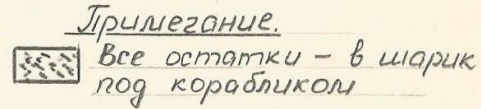 Примечание.
Все остатки – в шарик
под корабликом